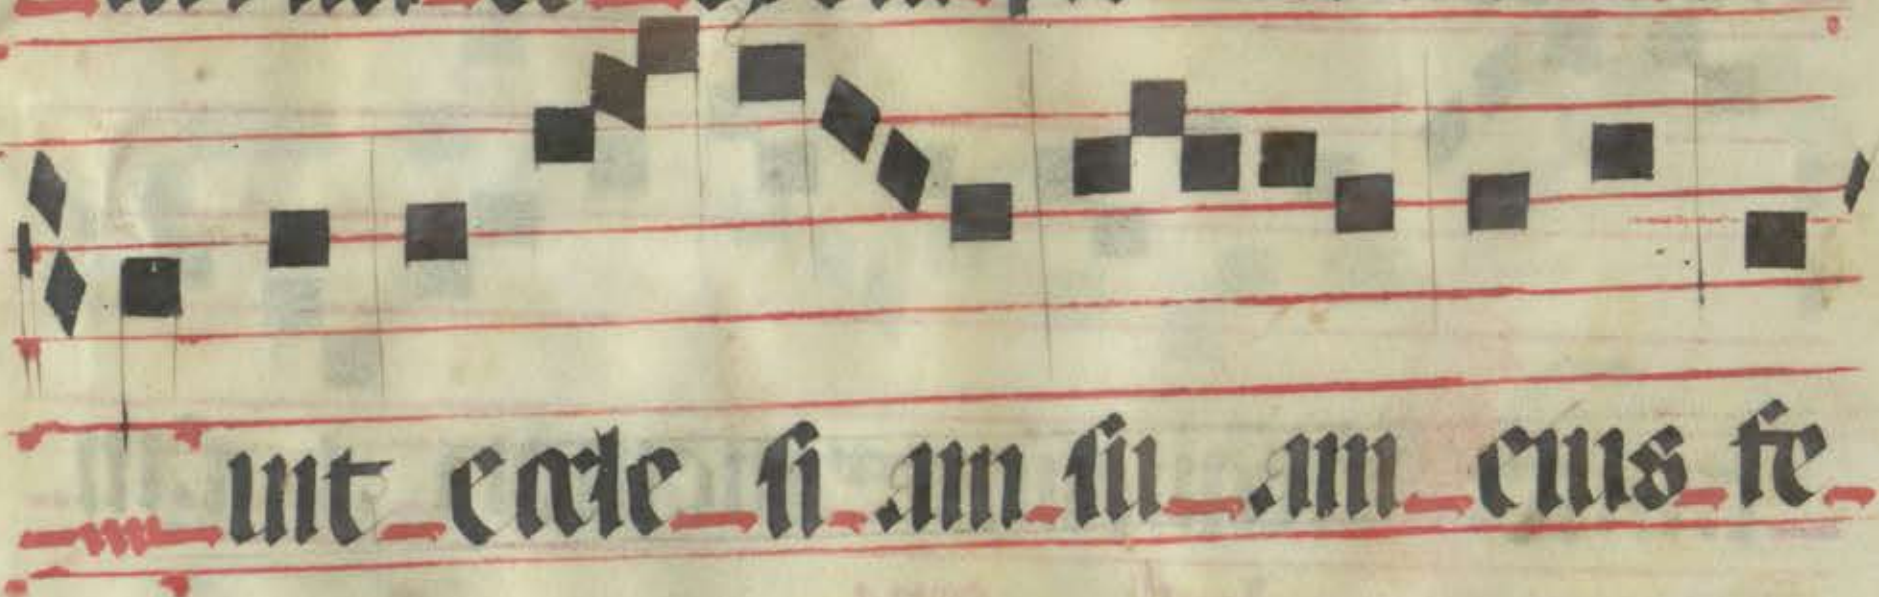 uit eccle si am su am eius fe